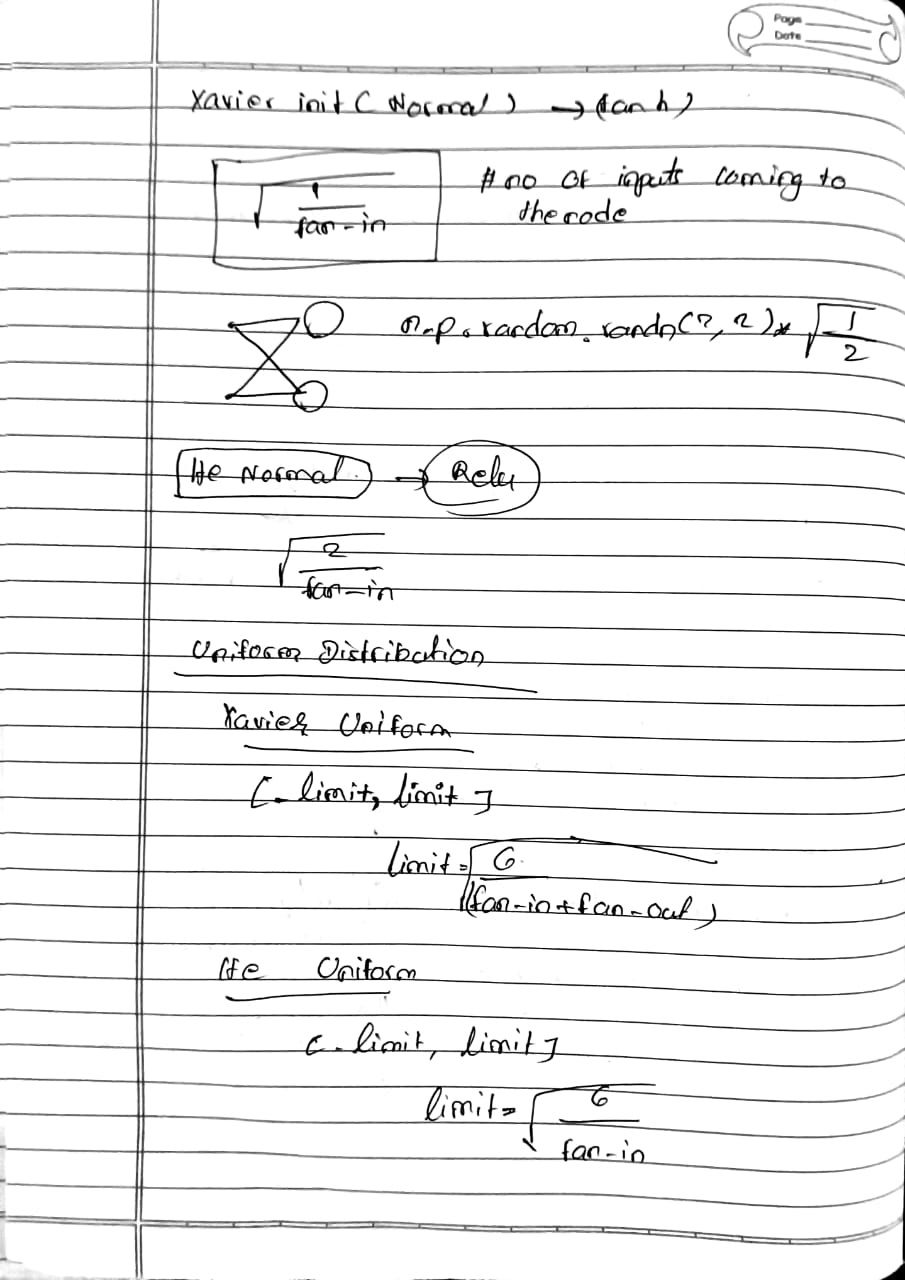 Page
Date
Xavier init (Normal) → (tanh)
√(1/fan-in) # no of inputs coming to
the node
n.p.random.randn(2, 2)* √(1/2)
He Normal. → Relu
√(2/fan-in)
Uniform Distribution
Xavier Uniform
[-limit, limit]
limit = √(6/(fan-in+fan-out))
He Uniform
[-limit, limit]
limit = √(6/fan-in)